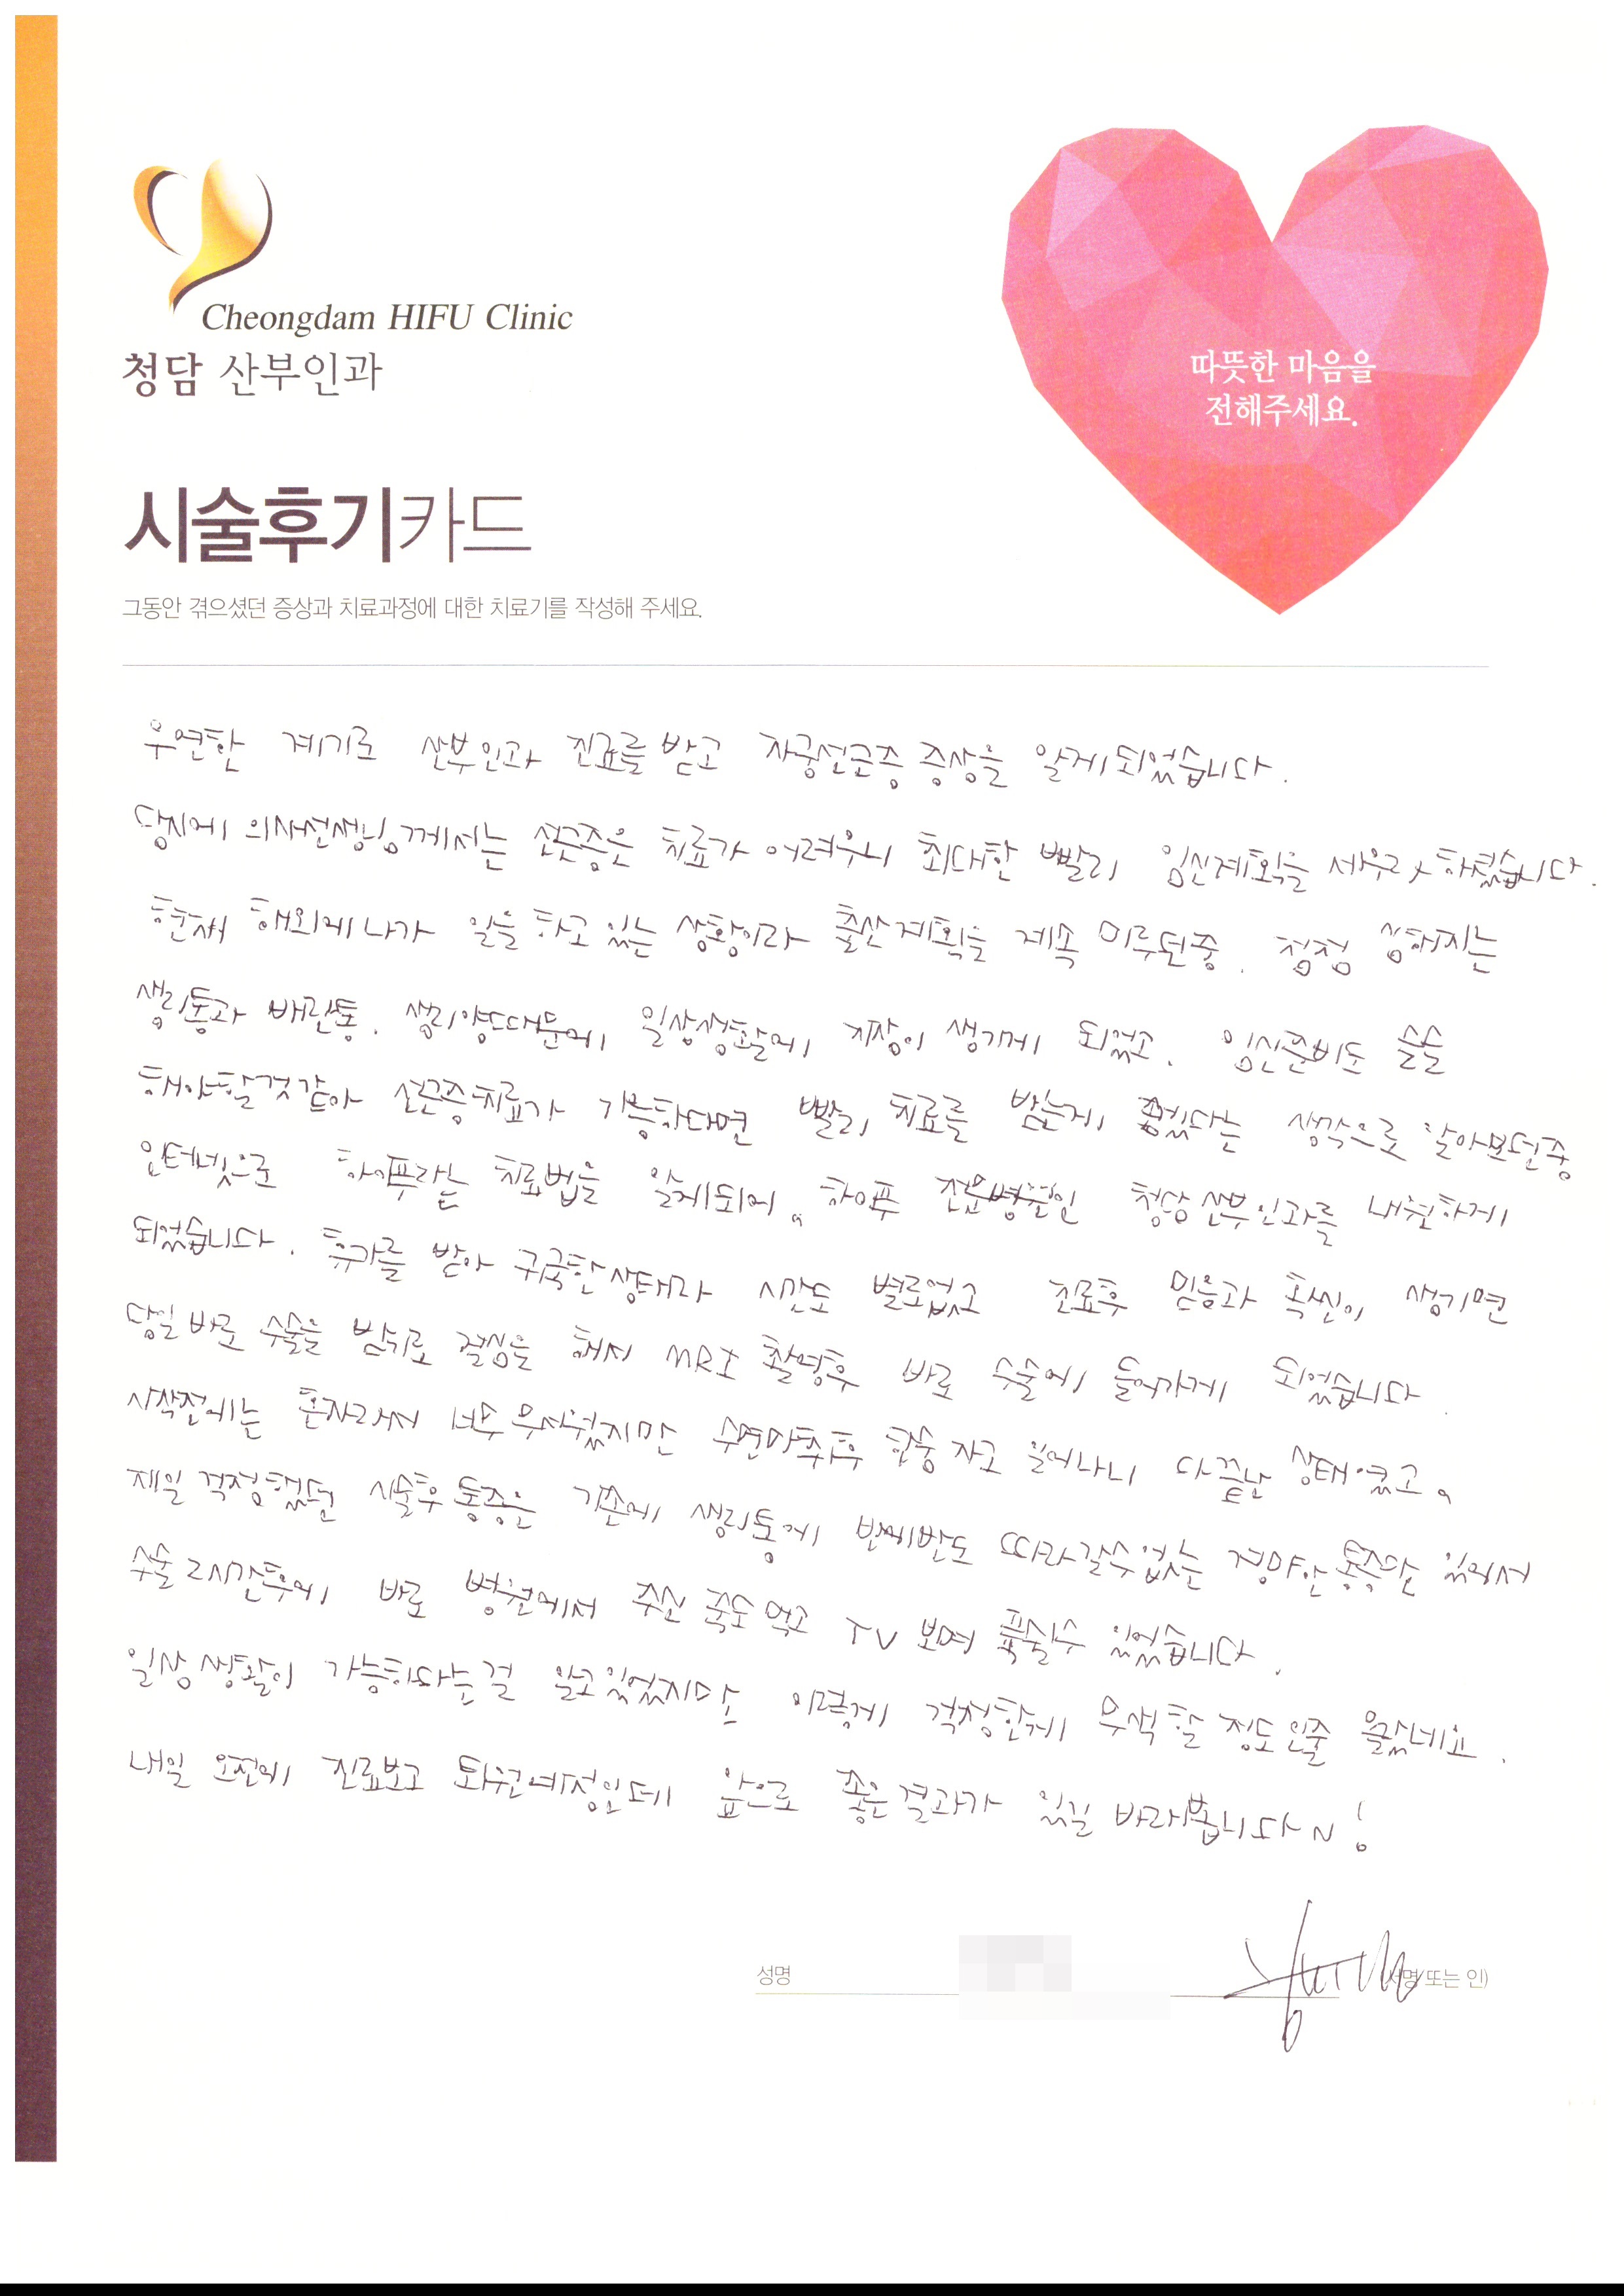 Cheongdam HIFU Clinic
청담 산부인과
따뜻한 마음을
전해주세요.
시술후기카드
그동안 겪으셨던 증상과 치료과정에 대한 치료기를 작성해 주세요.
우연한 계기로 산부인과 진료를 받고 자궁선근증 증상을 알게되었습니다.
당시에 의사선생님께서는 선근증은 치료가 어려우니 최대한 빨리 임신계획을 세우라 하셨습니다.
현재 해외에 나가 일을 하고 있는 상황이라 출산계획을 계속 미루던중, 점점 심해지는
생리통과 배란통, 생리양때문에 일상생활에 지장이 생기게 되었고, 임신준비도 슬슬
해야할것같아 선근증치료가 가능하다면 빨리 치료를 받는게 좋겠다는 생각으로 알아보던중
인터넷으로 하이푸라는 치료법을 알게되어, 하이푸 전문병원인 청담산부인과를 내원하게
되었습니다. 휴가를 받아 귀국한상태라 시간도 별로없고 진료후 믿음과 확신이 생기면
당일 바로 수술을 받기로 결심을 해서 MRI 촬영후 바로 수술에 들어가게 되었습니다.
시작전에는 혼자라서 너무 무서웠지만 수면마취후 한숨 자고 일어나니 다 끝난 상태였고,
제일 걱정했던 시술후 통증은 기존에 생리통에 반에반도 따라갈수없는 경미한 통증만 있어서
수술 2시간후에 바로 병원에서 주신 죽도 먹고 TV 보며 푹쉴수 있었습니다.
일상생활이 가능하다는걸 알고있었지만 이렇게 걱정한게 무색할 정도인줄 몰랐네요.
내일 오전에 진료보고 퇴원예정인데 앞으로 좋은결과가 있길 바래봅니다~!
성명 (서명 또는 인)